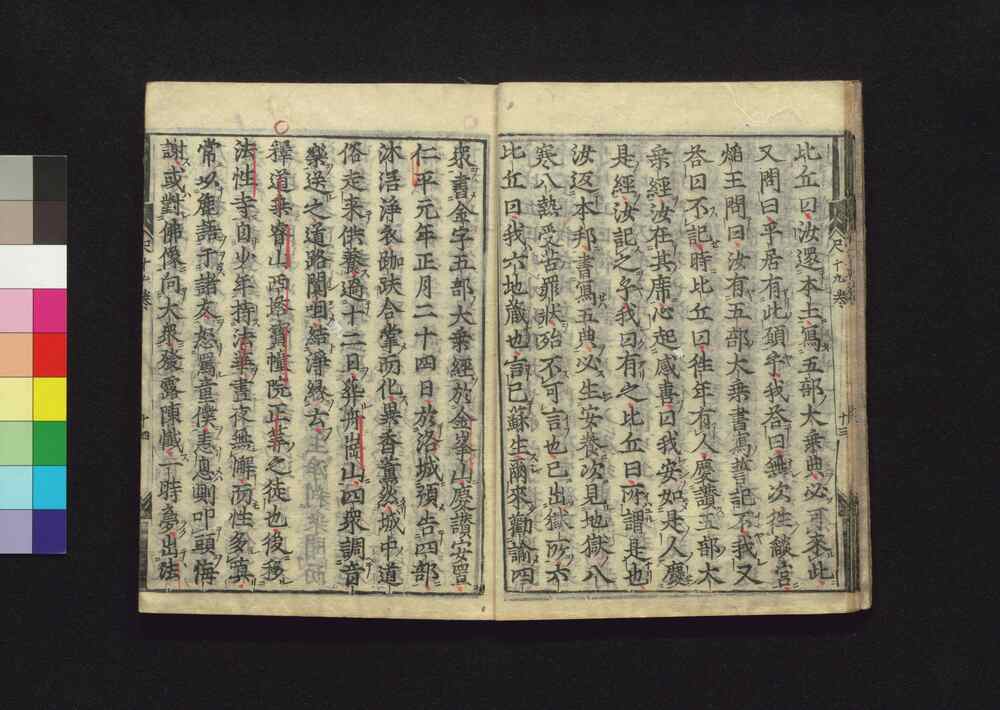 比丘曰汝還本土寫五部大乗典必可来此
又問曰平居有此願乎我荅曰無次徃䦨宮
焔王問曰汝有五部大乗書寫誓記不我又
荅曰不記時比丘曰徃年有人慶讃五部大
乗經汝在其席心起感喜曰我安如是人慶
是經汝記之乎我曰有之比丘曰所謂是也
汝返本邦書寫五典必生安養次見地獄八
寒八熱受苦罪狀殆不可言也已出獄所六
比丘曰我六地蔵也言已蘇生爾來勸論四
衆書金字五部大乗經於金峯山慶讃安置
仁平元年正月二十四日於洛城預告四部
沐浴淨衣跏趺合掌而化異香薫㷔城中道
俗走来供養過十二日葬舟崗山四衆調音
樂送之道路聞唱結淨縁去
釋道乗睿山西塔寳幢院正筭之徒也後移
法性寺自少年持法華晝夜無懈而性多嗔
常以麁語于諸友怒罵童僕恚息則叩頭悔
謝或對佛像向大衆發露陳懺一時夢出法
十三
十四